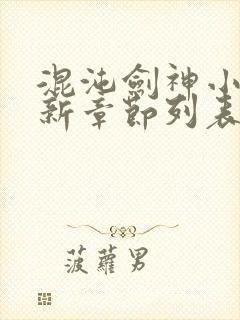 混沌劍神小
新章節列表
菠蘿男